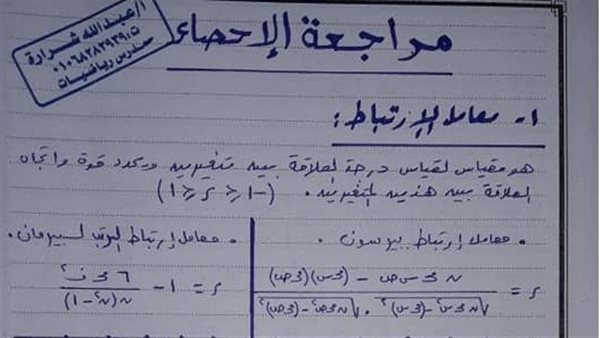 أ/عبدالله شرارة
ت ٠١٠٦٨٢٨٢٩٣٩
مدرس رياضيات
مراجعة الإحصاء
١- معامل الإرتباط :
هو مقياس لقياس درجة العلاقة بين متغيرين ويحدد قوة واتجاه
العلاقة بين هذين المتغيرين . (-١ ≤ ر ≤ ١)
• معامل إرتباط بيرسون
ر = (ن مجـ س ص - (مجـ س)(مجـ ص)) / (√(ن مجـ س² - (مجـ س)²) . √(ن مجـ ص² - (مجـ ص)²))
• معامل إرتباط الرتب لسبيرمان .
ر = ١ - (٦ مجـ ف²) / (ن(ن² - ١))